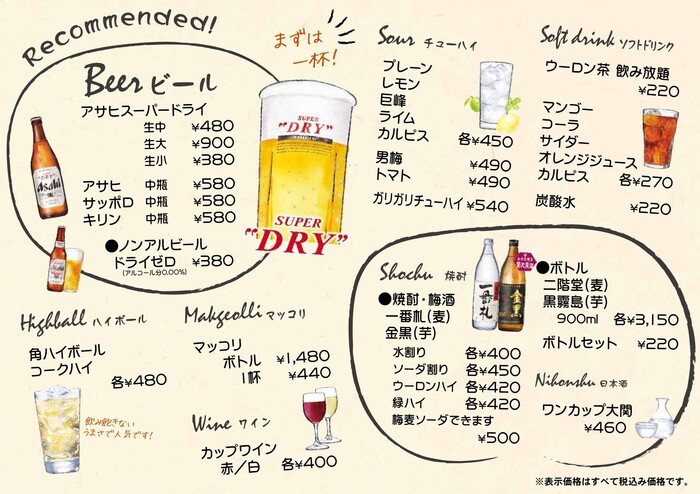 Recommended!
Beer ビール
アサヒスーパードライ
生中 ¥480
生大 ¥900
生小 ¥380
アサヒ 中瓶 ¥580
サッポロ 中瓶 ¥580
キリン 中瓶 ¥580
●ノンアルビール
ドライゼロ ¥380
(アルコール分0.00%)
まずは
一杯!
SUPER
"DRY"
SUPER
"DRY"
Asahi
Sour チューハイ
プレーン
レモン
巨峰
ライム
カルピス 各¥450
男梅 ¥490
トマト ¥490
ガリガリチューハイ ¥540
Soft drink ソフトドリンク
ウーロン茶 飲み放題
¥220
マンゴー
コーラ
サイダー
オレンジジュース
カルピス 各¥270
炭酸水 ¥220
Highball ハイボール
角ハイボール
コークハイ
各¥480
飲み飽きない
うまさで人気です!
Makgeolli マッコリ
マッコリ
ボトル ¥1,480
1杯 ¥440
Wine ワイン
カップワイン
赤/白 各¥400
Shochu 焼酎
●焼酎・梅酒
一番札(麦)
金黒(芋)
水割り 各¥400
ソーダ割り 各¥450
ウーロンハイ 各¥420
緑ハイ 各¥420
梅麦ソーダできます
¥500
一番札
金黒
●ボトル
二階堂(麦)
黒霧島(芋)
900ml 各¥3,150
ボトルセット ¥220
Nihonshu 日本酒
ワンカップ大関
¥460
※表示価格はすべて税込み価格です。